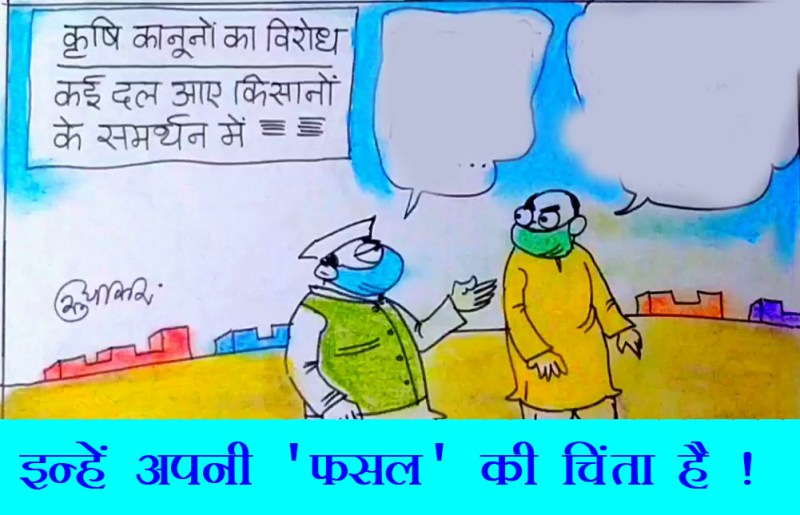 कृषि कानूनों का विरोध
कई दल आए किसानों
के समर्थन में
...
सुधाकर
इन्हें अपनी 'फसल' की चिंता है !